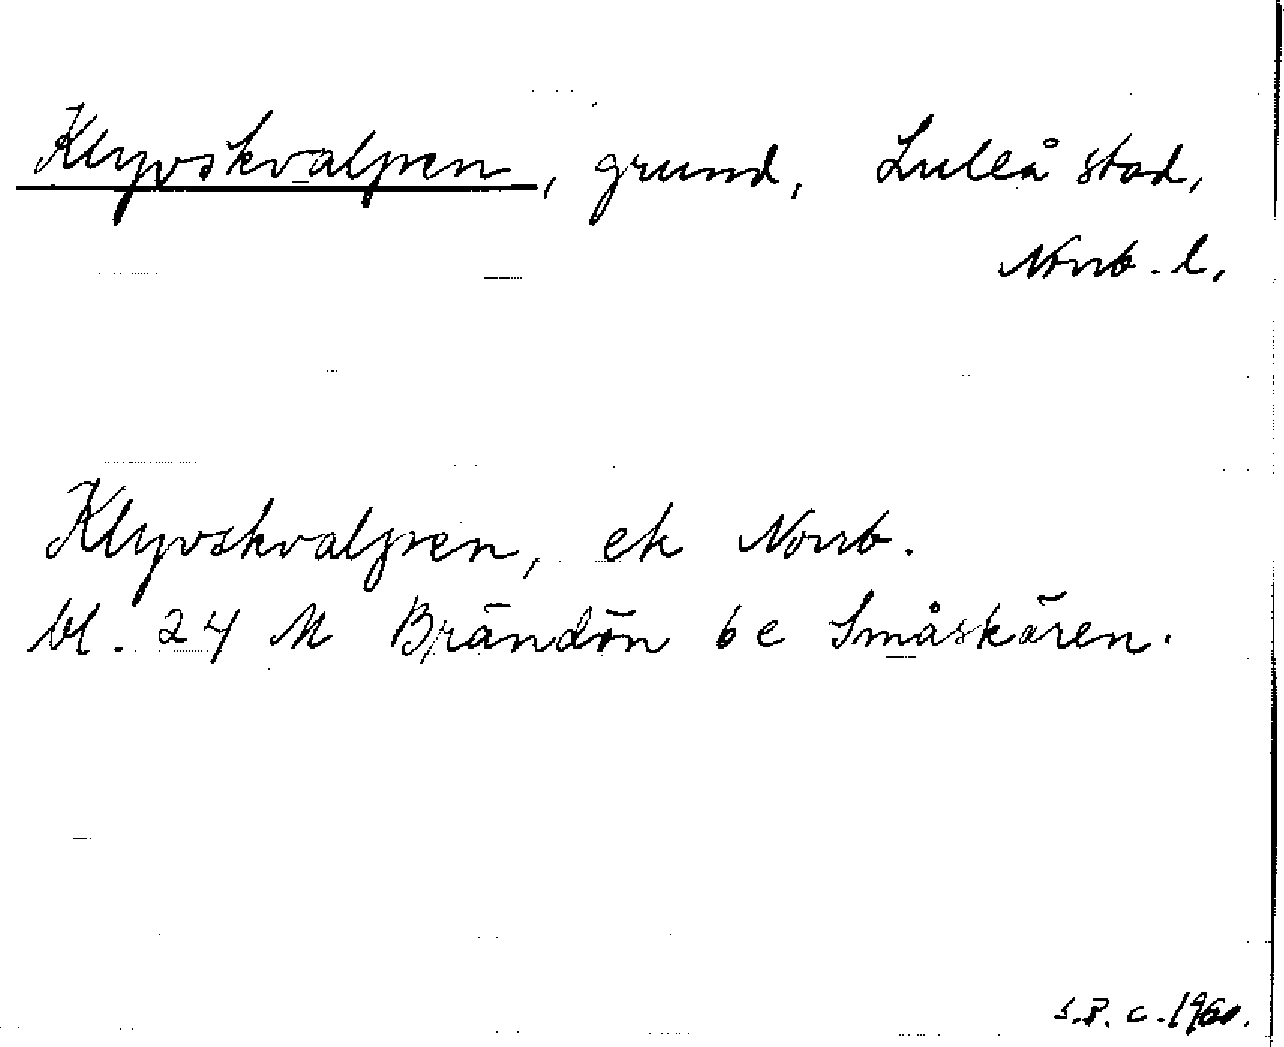 Klyvskvalpen, grund, Luleå stad,
Norrb. l.
Klyvskvalpen, ek Norrb.
bl. 24 M Brändön 6e Småskären.
S.P. c. 1960.